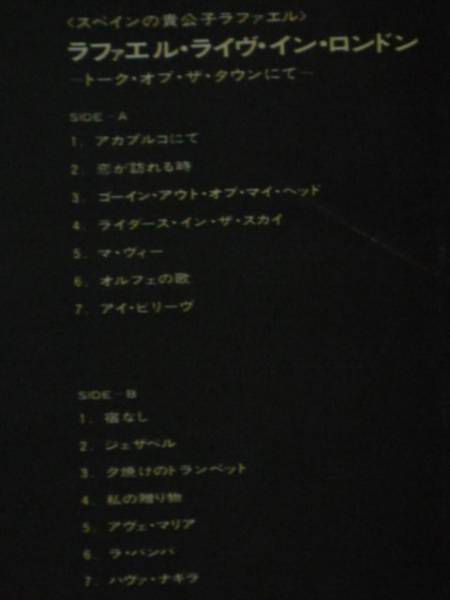 〈スペインの貴公子ラファエル〉
ラファエル・ライヴ・イン・ロンドン
─トーク・オブ・ザ・タウンにて─
SIDE-A
1. アカプルコにて
2. 恋が訪れる時
3. ゴーイン・アウト・オブ・マイ・ヘッド
4. ライダース・イン・ザ・スカイ
5. マ・ヴィー
6. オルフェの歌
7. アイ・ビリーヴ
SIDE-B
1. 宿なし
2. ジェザベル
3. 夕焼けのトランペット
4. 私の贈り物
5. アヴェ・マリア
6. ラ・バンバ
7. ハヴァ・ナギラ